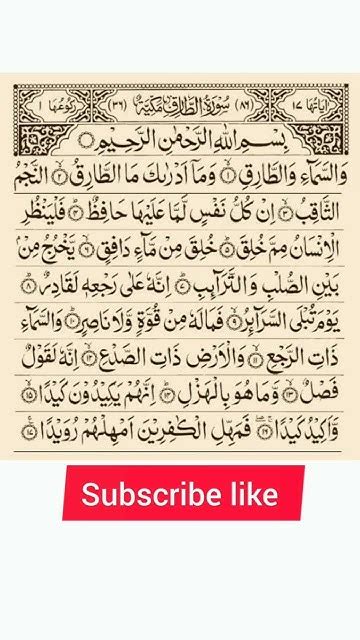 اٰيَاتُهَا ١٧ (٨٦) سُوْرَةُ الطَّارِقِ مَكِّيَّةٌ (٣٦) رُكُوْعُهَا ١
بِسْمِ اللّٰهِ الرَّحْمٰنِ الرَّحِيْمِ
وَالسَّمَآءِ وَالطَّارِقِ ۙ﴿١﴾ وَمَآ اَدْرٰىكَ مَا الطَّارِقُ ۙ﴿٢﴾ النَّجْمُ
الثَّاقِبُ ۙ﴿٣﴾ اِنْ كُلُّ نَفْسٍ لَّمَّا عَلَيْهَا حَافِظٌ ؕ﴿٤﴾ فَلْيَنْظُرِ
الْاِنْسَانُ مِمَّ خُلِقَ ؕ﴿٥﴾ خُلِقَ مِنْ مَّآءٍ دَافِقٍ ۙ﴿٦﴾ يَّخْرُجُ مِنْۢ
بَيْنِ الصُّلْبِ وَالتَّرَآئِبِ ؕ﴿٧﴾ اِنَّهٗ عَلٰى رَجْعِهٖ لَقَادِرٌ ؕ﴿٨﴾
يَوْمَ تُبْلَى السَّرَآئِرُ ۙ﴿٩﴾ فَمَا لَهٗ مِنْ قُوَّةٍ وَّلَا نَاصِرٍ ؕ﴿١٠﴾ وَالسَّمَآءِ
ذَاتِ الرَّجْعِ ۙ﴿١١﴾ وَالْاَرْضِ ذَاتِ الصَّدْعِ ۙ﴿١٢﴾ اِنَّهٗ لَقَوْلٌ
فَصْلٌ ۙ﴿١٣﴾ وَّمَا هُوَ بِالْهَزْلِ ؕ﴿١٤﴾ اِنَّهُمْ يَكِيْدُوْنَ كَيْدًا ۙ﴿١٥﴾
وَّاَكِيْدُ كَيْدًا ۖۚ﴿١٦﴾ فَمَهِّلِ الْكٰفِرِيْنَ اَمْهِلْهُمْ رُوَيْدًا ﴿١٧﴾
Subscribe like